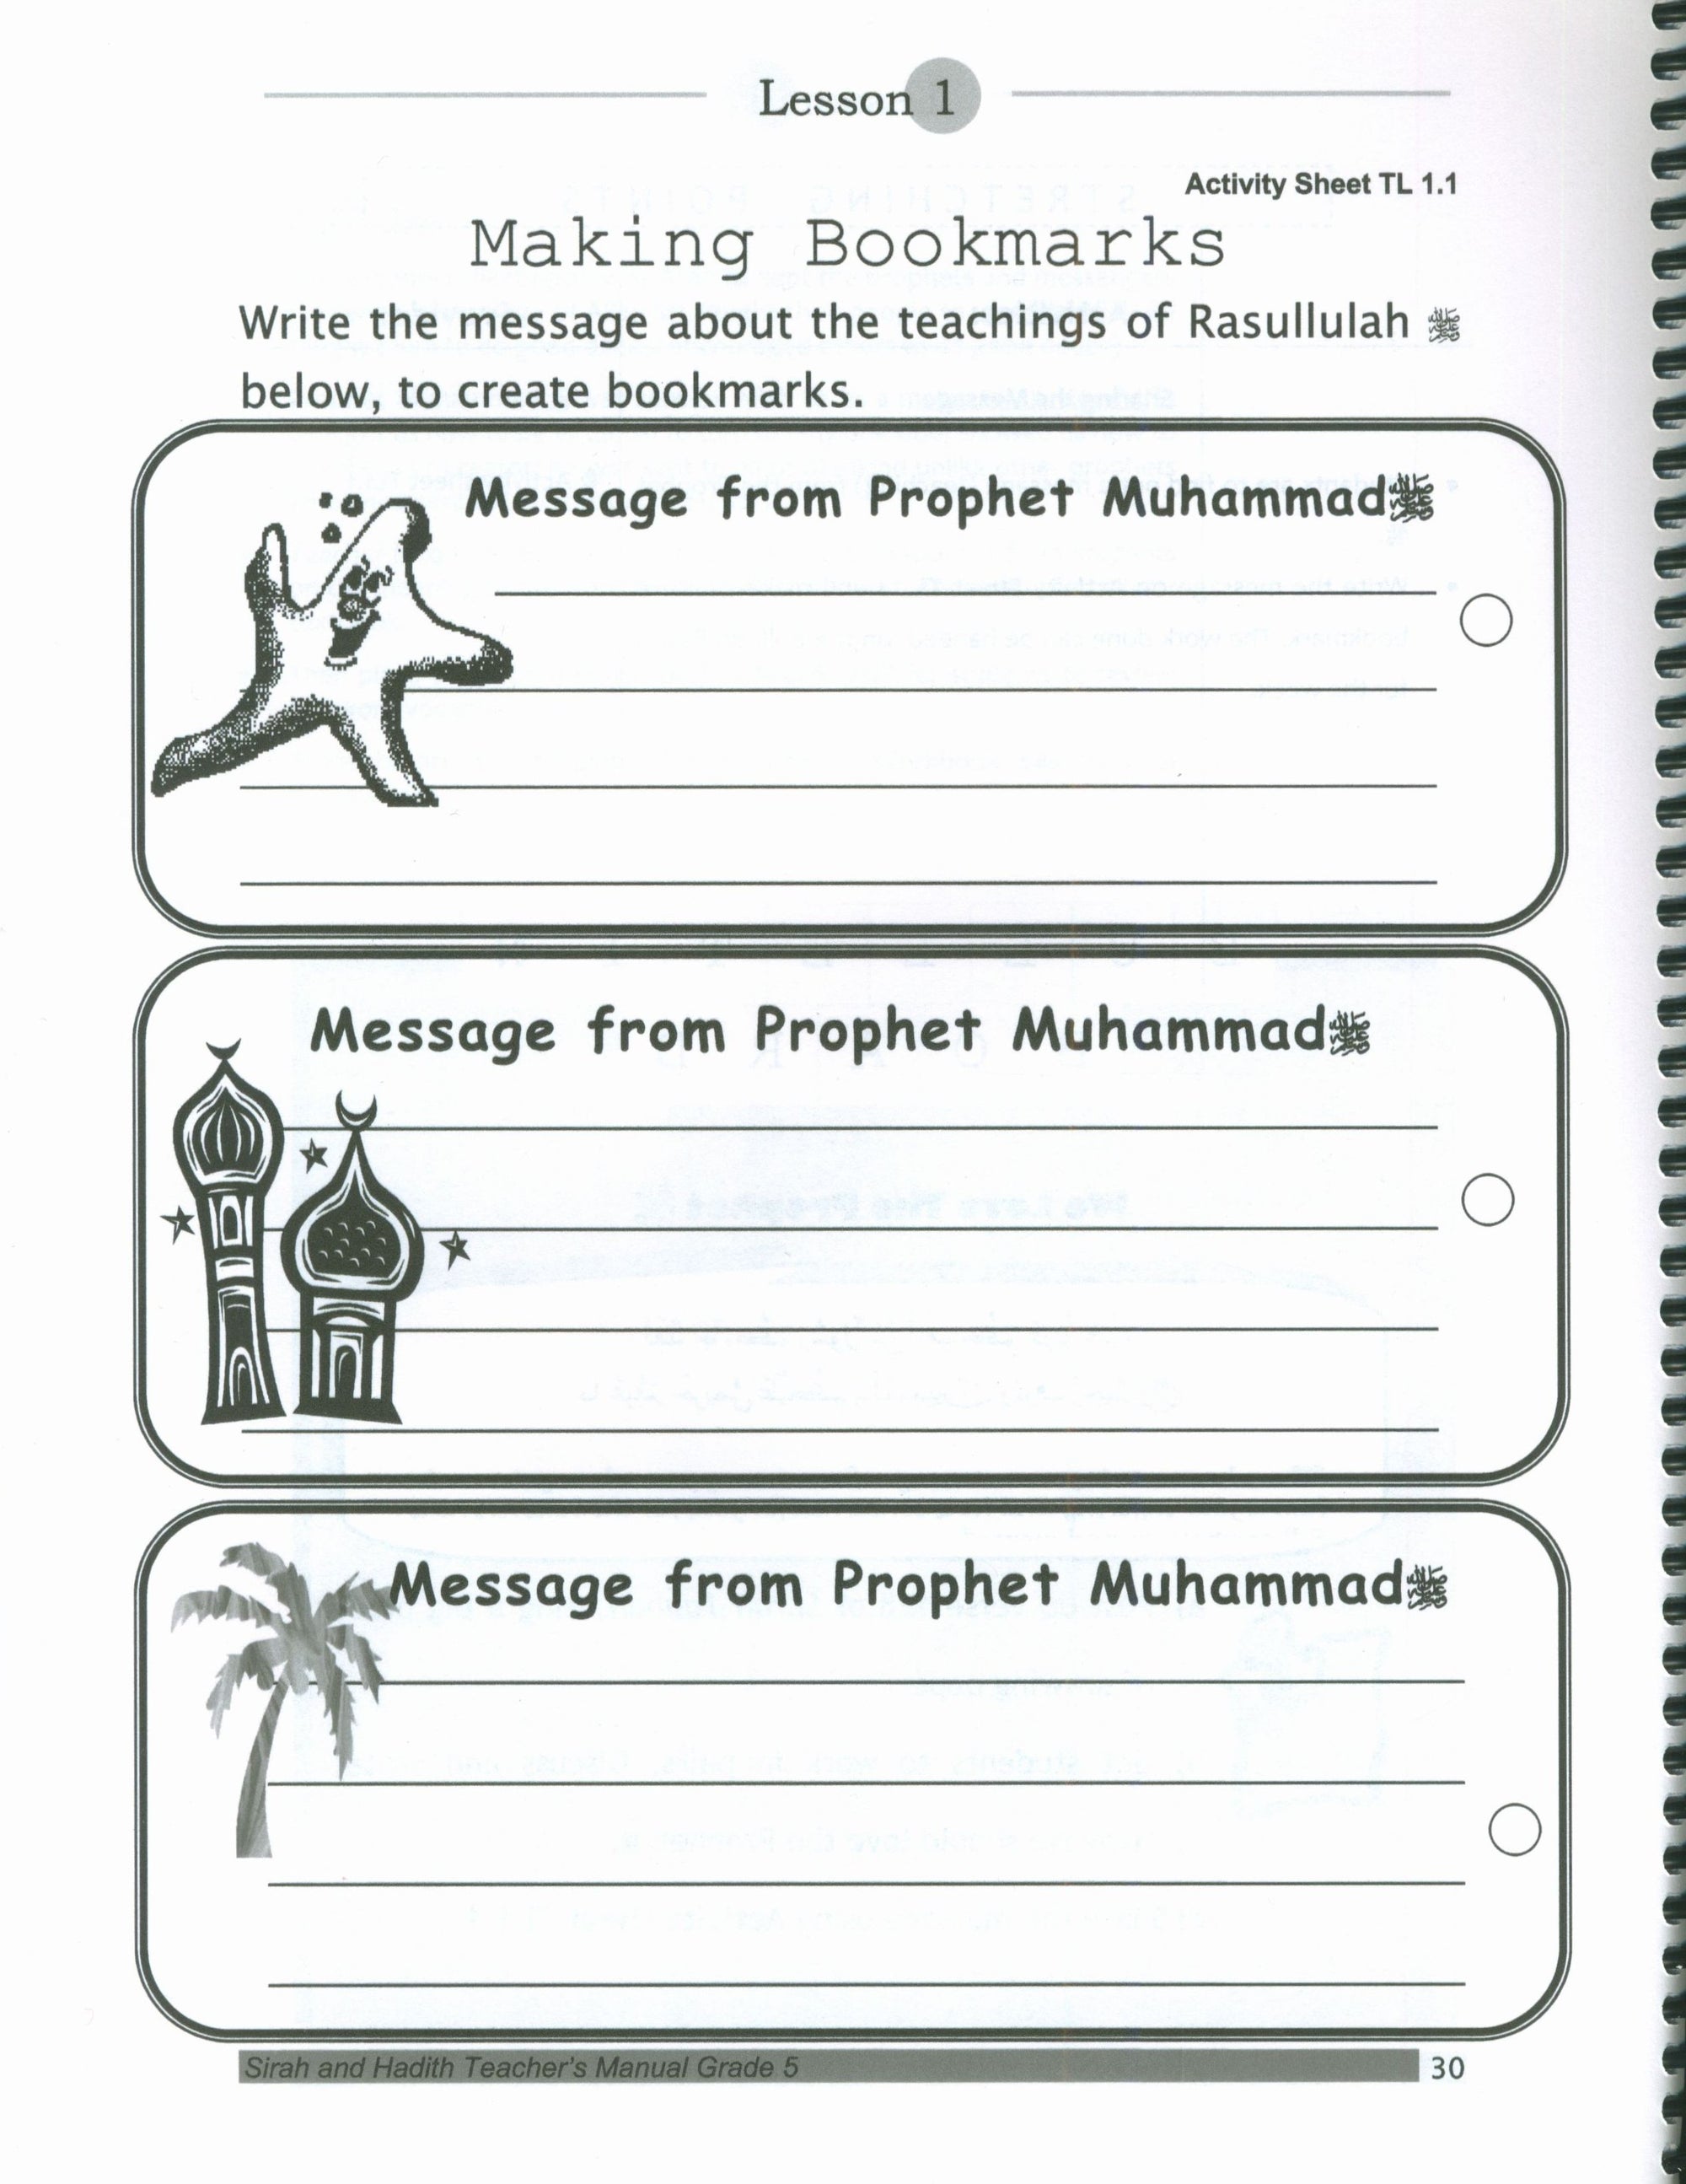 Lesson 1
Activity Sheet TL 1.1
Making Bookmarks
Write the message about the teachings of Rasullulah ﷺ
below, to create bookmarks.
Message from Prophet Muhammadﷺ
Message from Prophet Muhammadﷺ
Message from Prophet Muhammadﷺ
Sirah and Hadith Teacher's Manual Grade 5
30